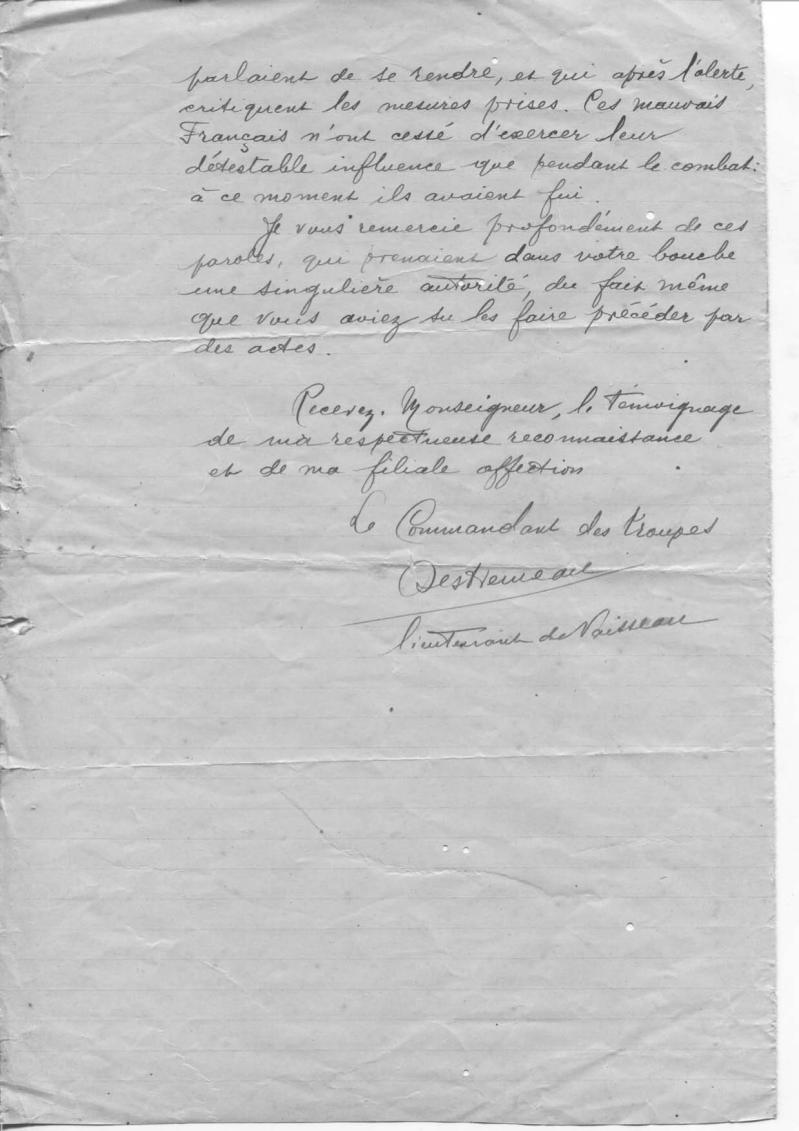 parlaient de se rendre, et qui après l'alerte,
critiquent les mesures prises. Ces mauvais
Français n'ont cessé d'exercer leur
détestable influence que pendant le combat :
à ce moment ils avaient fui.
Je vous remercie profondément de ces
paroles, qui prenaient dans votre bouche
une singulière autorité, du fait même
que vous aviez su les faire précéder par
des actes.
Recevez, Monseigneur, le témoignage
de ma respectueuse reconnaissance
et de ma filiale affection
Le Commandant des troupes
Destremeau
lieutenant de Vaisseau